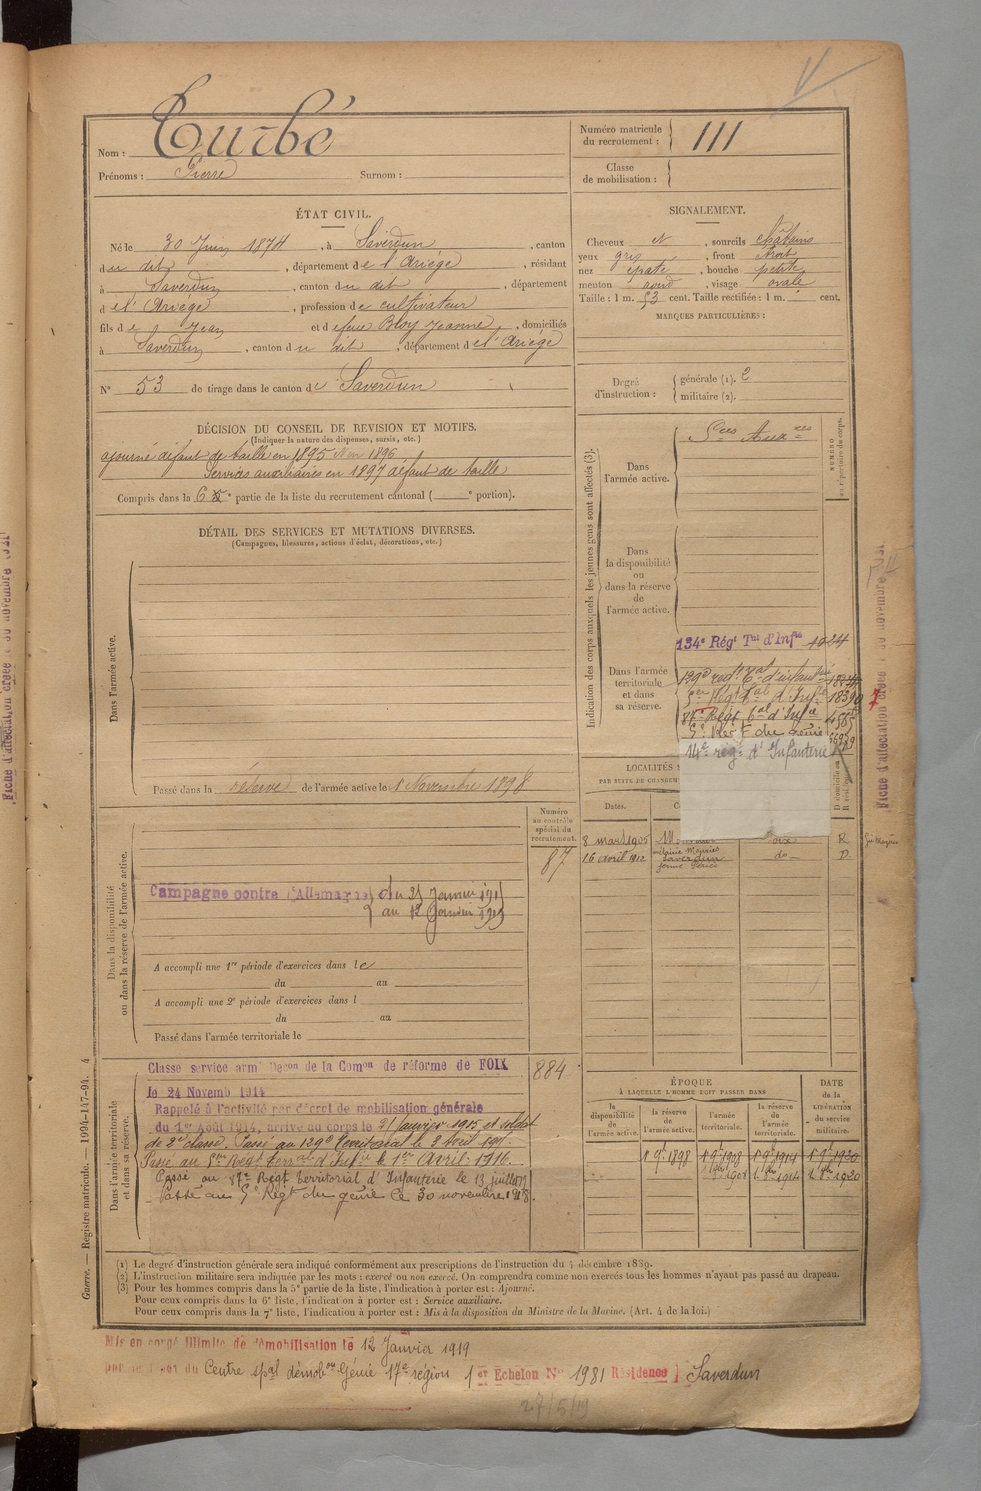 Nom : Turbé
Prénoms : Pierre Surnom :
Numéro matricule du recrutement : 111
Classe de mobilisation :
ÉTAT CIVIL.
Né le 30 Juin 1874, à Saverdun, canton
du dit, département de l'Ariège, résidant
à Saverdun, canton du dit, département
de l'Ariège, profession de cultivateur
fils de Jean et de feue Bloy Jeanne, domiciliés
à Saverdun, canton du dit, département de l'Ariège
N° 53 de tirage dans le canton de Saverdun
SIGNALEMENT.
Cheveux et, sourcils châtains
yeux gris, front étroit
nez épaté, bouche petite
menton rond, visage ovale
Taille : 1 m. 53 cent. Taille rectifiée : 1 m. cent.
MARQUES PARTICULIÈRES :
Degré d'instruction : générale (1). 2
militaire (2).
DÉCISION DU CONSEIL DE REVISION ET MOTIFS.
(Indiquer la nature des dispenses, sursis, etc.)
ajourné défaut de taille en 1895 et en 1896
Services auxiliaires en 1897 défaut de taille
Compris dans la 6e partie de la liste du recrutement cantonal ( e portion).
DÉTAIL DES SERVICES ET MUTATIONS DIVERSES.
(Campagnes, blessures, actions d'éclat, décorations, etc.)
Dans l'armée active.
Passé dans la réserve de l'armée active le 1 Novembre 1898
Indication des corps auxquels les jeunes gens sont affectés (3).
NUMÉRO au répertoire du corps.
Dans l'armée active.
Sces Auxres
Dans la disponibilité ou dans la réserve de l'armée active.
Dans l'armée territoriale et dans sa réserve.
134e Régt Tal d'Infie
129e regt Tal d'infanterie
Régt Tal d'Infie 18390
87e Régt Tal d'Infie
5e Regt du Génie
14e rég. d'Infanterie
LOCALITÉS
PAR SUITE DE CHANGEM
Dates.
8 mars 1905 R
16 avril 1912 Saverdun do D
Numéro au contrôle spécial du recrutement.
87
Dans la disponibilité ou dans la réserve de l'armée active.
Campagne contre l'Allemagne du 21 Janvier 1915
au 12 Janvier 1919
A accompli une 1re période d'exercices dans le
du au
A accompli une 2e période d'exercices dans l
du au
Passé dans l'armée territoriale le
Dans l'armée territoriale et dans sa réserve.
884
Classe service armé Decon de la Comon de réforme de FOIX
le 24 Novemb 1914
Rappelé à l'activité par décret de mobilisation générale
du 1er Août 1914, arrive au corps le 21 janvier 1915 et soldat
de 2e classe. Passé au 129e Territorial le 8 Avril
Passé au Régt Terral d'Infie le 1er Avril 1916.
Passé au 87e Regt territorial d'Infanterie le 13 juillet
Passé au 5e Régt du génie le 30 novembre 1918.
ÉPOQUE
À LAQUELLE L'HOMME DOIT PASSER DANS
la disponibilité de l'armée active.
la réserve de l'armée active.
l'armée territoriale.
la réserve de l'armée territoriale.
DATE de la LIBÉRATION du service militaire.
1 9bre 1898 1 9bre 1908 1 9bre 1914 1 9bre 1920
1 8bre 1908 1 8bre 1914 1 8bre 1920
(1) Le degré d'instruction générale sera indiqué conformément aux prescriptions de l'instruction du 4 décembre 1889.
(2) L'instruction militaire sera indiquée par les mots : exercé ou non exercé. On comprendra comme non exercés tous les hommes n'ayant pas passé au drapeau.
(3) Pour les hommes compris dans la 5e partie de la liste, l'indication à porter est : Ajourné.
Pour ceux compris dans la 6e liste, l'indication à porter est : Service auxiliaire.
Pour ceux compris dans la 7e liste, l'indication à porter est : Mis à la disposition du Ministre de la Marine. (Art. 4 de la loi.)
Guerre. — Registre matricule. — 1994-147-94. 4
Mis en congé illimité de démobilisation le 12 Janvier 1919
Centre spal démobon Génie 17e région 1er Echelon No 1981 Résidence Saverdun
27/5/19